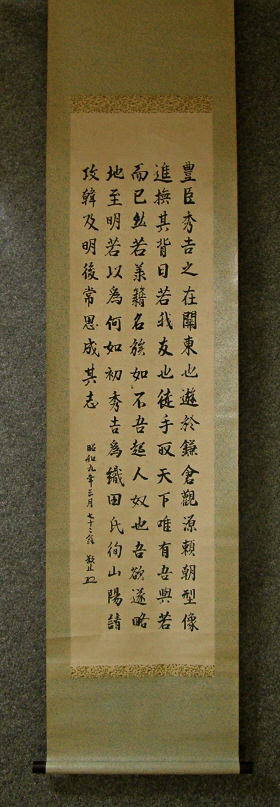 豐臣秀吉之在關東也遊於鎌倉觀源賴朝塑像
進撫其背曰若我友也徒手取天下唯有吾與若
而已然若承籍名族如不吾起人奴也吾欲遂略
地至明若以為何如初秀吉為織田氏徇山陽請
攻韓及明後常思成其志
昭和九年三月七十三翁